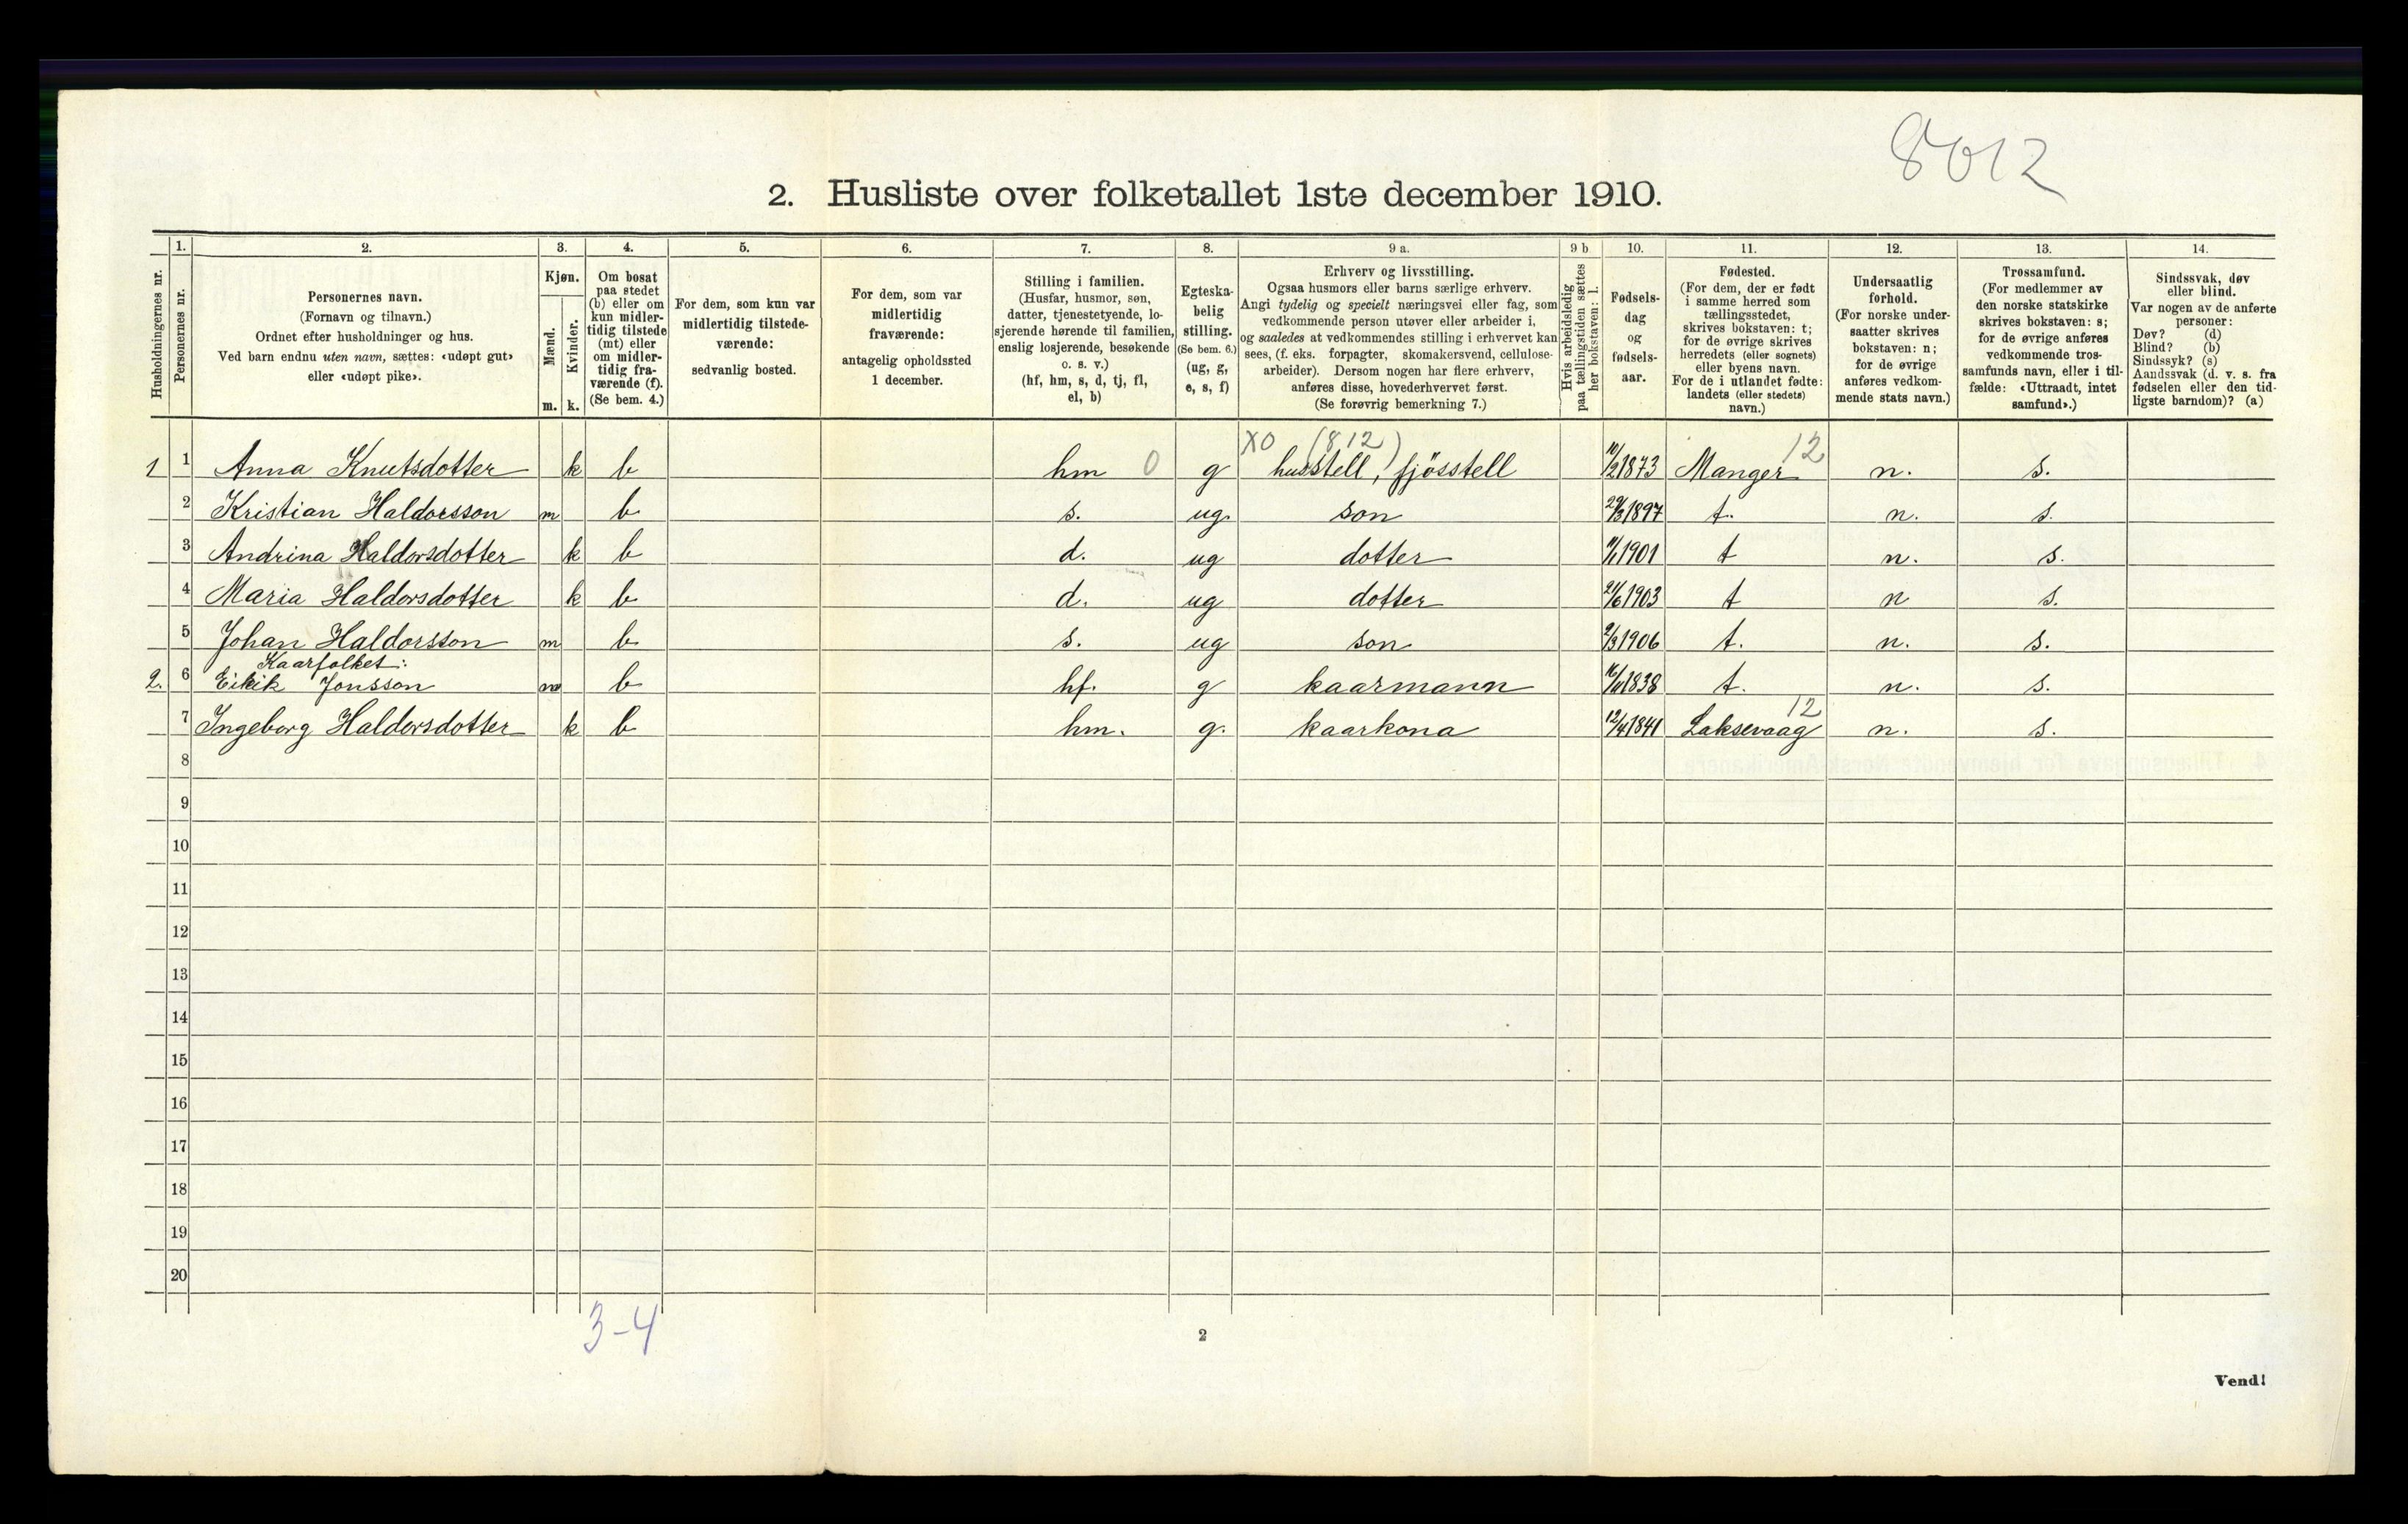 8012
2. Husliste over folketallet 1ste december 1910.
Husholdningernes nr.
1.
Personernes nr.
2.
Personernes navn.
(Fornavn og tilnavn.)
Ordnet efter husholdninger og hus.
Ved barn endnu uten navn, sættes: «udøpt gut»
eller «udøpt pike».
3.
Kjøn.
Mænd.
Kvinder.
m. k.
4.
Om bosat
paa stedet
(b) eller om
kun midler-
tidig tilstede
(mt) eller
om midler-
tidig fra-
værende (f).
(Se bem. 4.)
5.
For dem, som kun var
midlertidig tilstede-
værende:
sedvanlig bosted.
6.
For dem, som var
midlertidig
fraværende:
antagelig opholdssted
1 december.
7.
Stilling i familien.
(Husfar, husmor, søn,
datter, tjenestetyende, lo-
sjerende hørende til familien,
enslig losjerende, besøkende
o. s. v.)
(hf, hm, s, d, tj, fl,
el, b)
8.
Egteska-
belig
stilling.
(Se bem. 6.)
(ug, g,
e, s, f)
9 a.
Erhverv og livsstilling.
Ogsaa husmors eller barns særlige erhverv.
Angi tydelig og specielt næringsvei eller fag, som
vedkommende person utøver eller arbeider i,
og saaledes at vedkommendes stilling i erhvervet kan
sees, (f. eks. forpagter, skomakersvend, cellulose-
arbeider). Dersom nogen har flere erhverv,
anføres disse, hovederhvervet først.
(Se forøvrig bemerkning 7.)
9 b
Hvis arbeidsledig
paa tællingstiden sættes
her bokstaven: l.
10.
Fødsels-
dag
og
fødsels-
aar.
11.
Fødested.
(For dem, der er født
i samme herred som
tællingsstedet,
skrives bokstaven: t;
for de øvrige skrives
herredets (eller sognets)
eller byens navn.
For de i utlandet fødte:
landets (eller stedets)
navn.)
12.
Undersaatlig
forhold.
(For norske under-
saatter skrives
bokstaven: n;
for de øvrige
anføres vedkom-
mende stats navn.)
13.
Trossamfund.
(For medlemmer av
den norske statskirke
skrives bokstaven: s;
for de øvrige anføres
vedkommende tros-
samfunds navn, eller i til-
fælde: «Uttraadt, intet
samfund».)
14.
Sindssvak, døv
eller blind.
Var nogen av de anførte
personer:
Døv? (d)
Blind? (b)
Sindssyk? (s)
Aandssvak (d. v. s. fra
fødselen eller den tid-
ligste barndom)? (a)
XO (812) 12
1 1 Anna Knutsdotter k b hm 0 g husstell, fjösstell 10/2 1873 Manger n. s.
2 Kristian Haldorsson m b s. ug. son 29/3 1897 t. n. s.
3 Andrina Haldorsdotter k b d. ug dotter 1901 t n. s.
4 Maria Haldorsdotter k b d. ug dotter 21/6 1903 t n s.
5 Johan Haldorsson m b s. ug son 9/3 1906 t. n. s.
Kaarfolket:
2. 6 Eirik Jonsson m b hf. g kaarmann 1838 t. n. s.
12
7 Ingeborg Haldorsdotter k b hm. g. kaarkona 12/4 1841 Laksevaag n. s.
8
9
10
11
12
13
14
15
16
17
18
19
20
3-4
2
Vend!